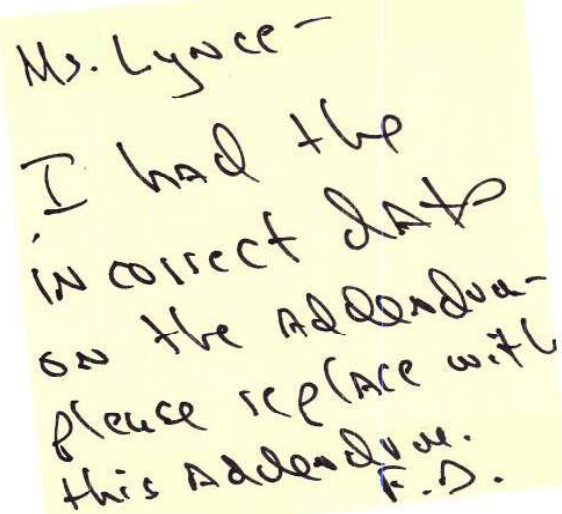 Ms. Lynce -
I had the
incorrect date
on the Addendum -
please replace with
this Addendum.
F.D.